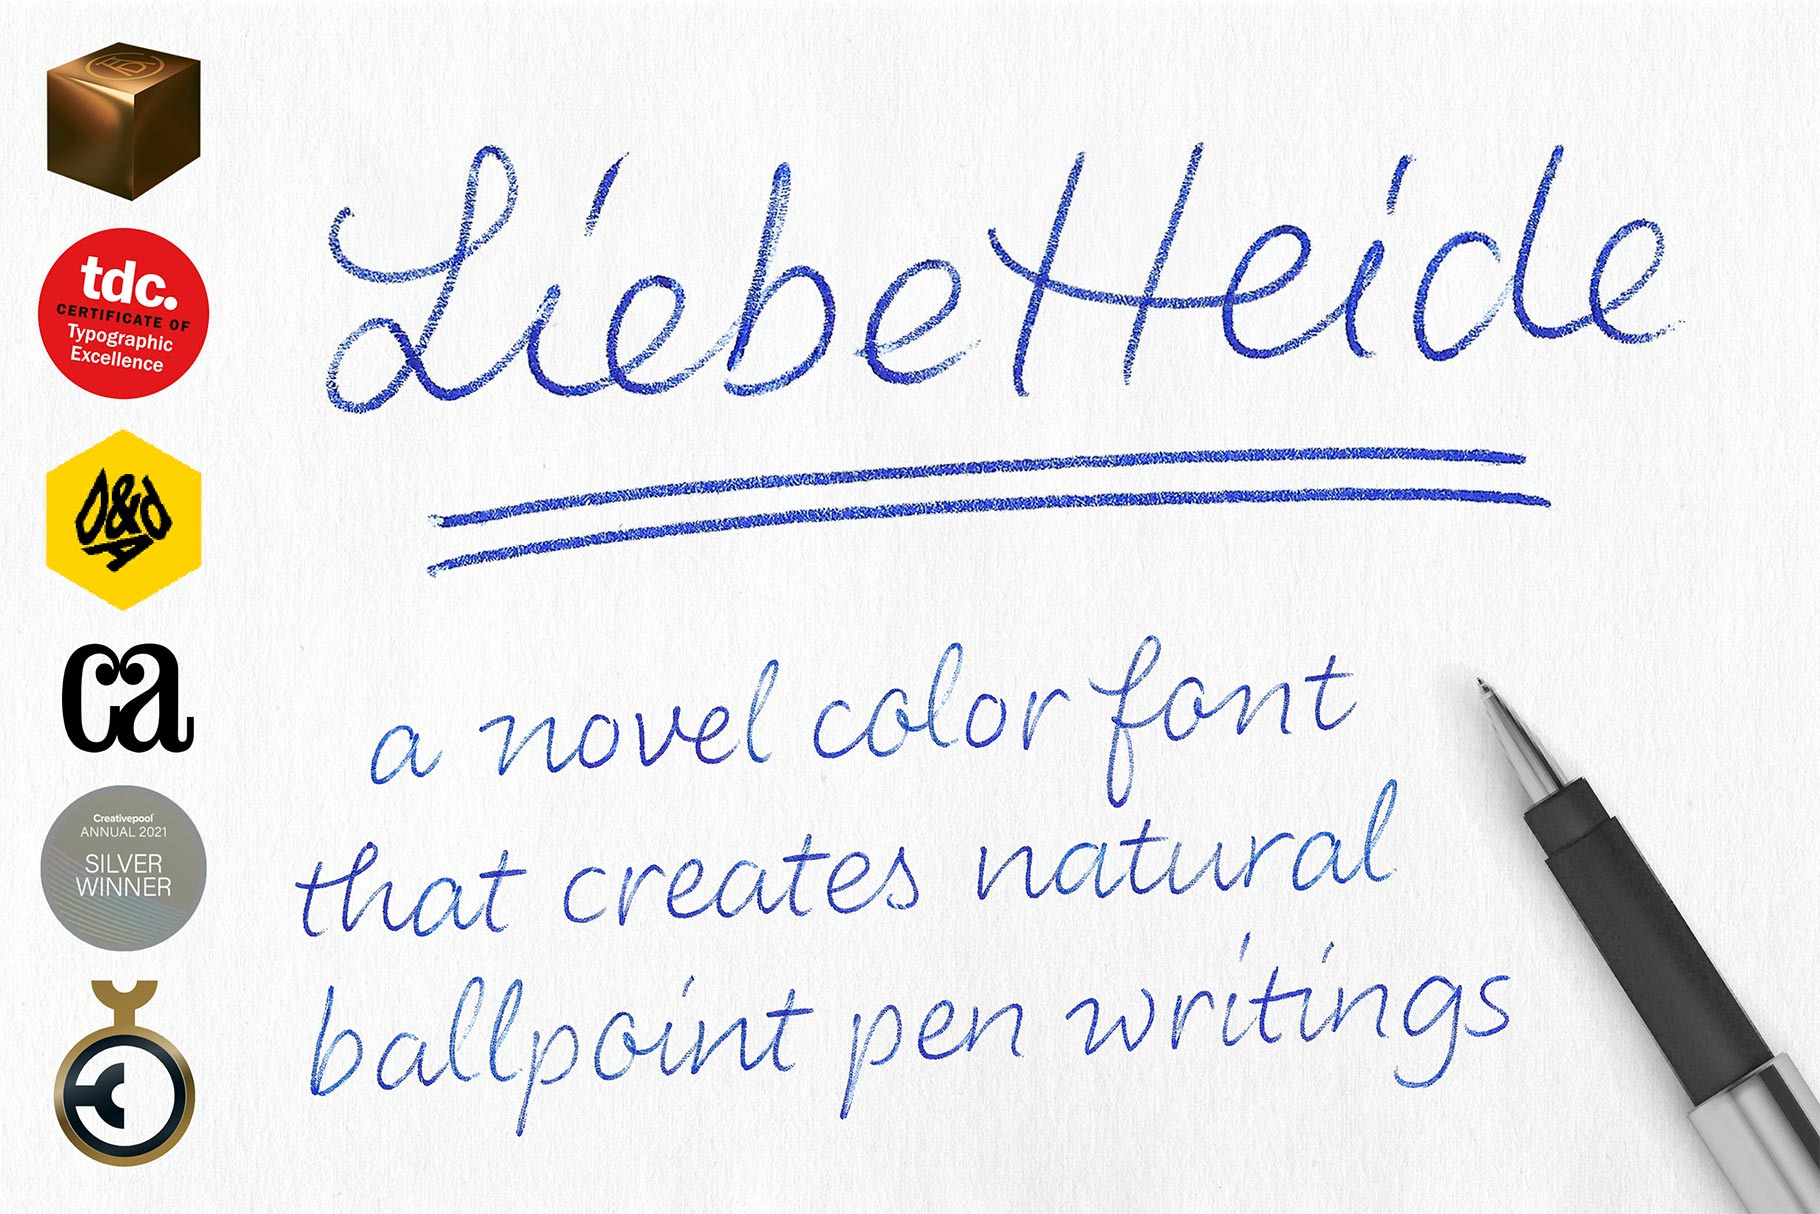 LiebeHeide
a novel color font
that creates natural
ballpoint pen writings
tdc.
CERTIFICATE OF
Typographic
Excellence
D&AD
ca
Creativepool
ANNUAL 2021
SILVER
WINNER